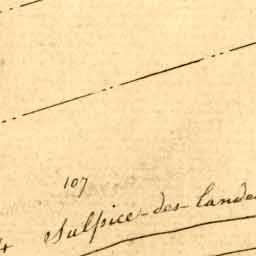 107
4 Sulpice-des-Lande